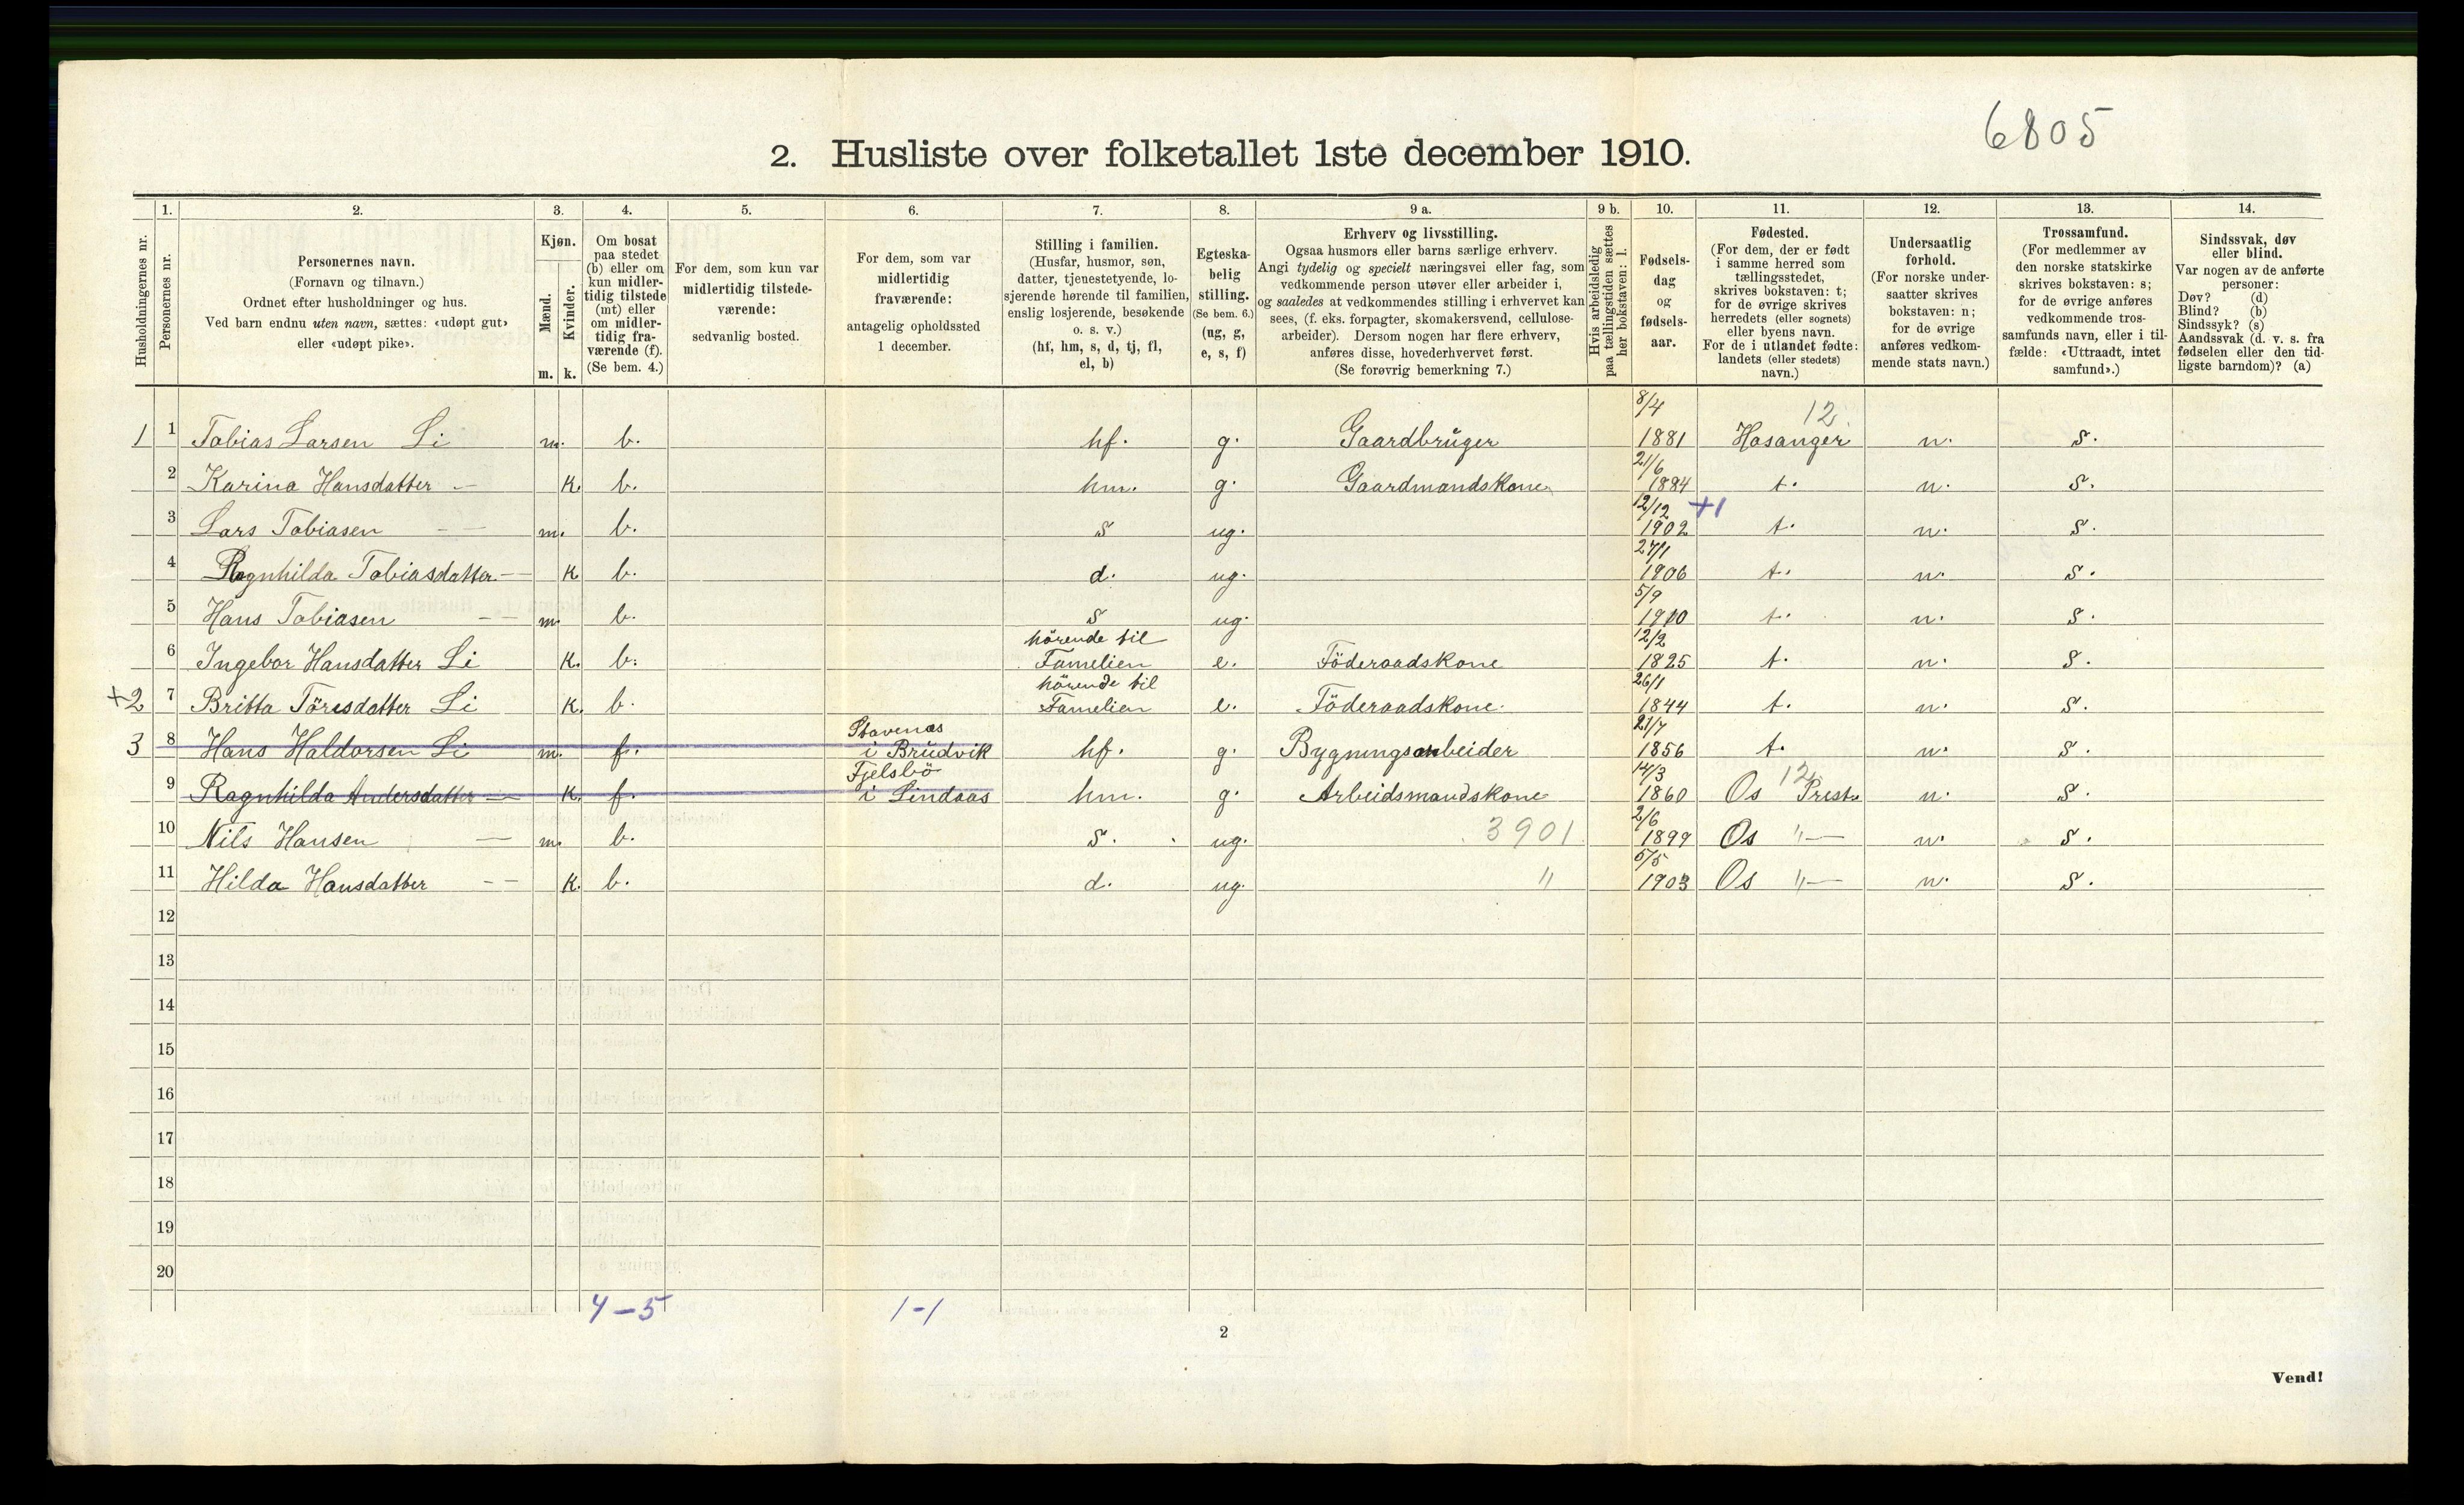 6805
2. Husliste over folketallet 1ste december 1910.
Husholdningernes nr.
1. Personernes nr.
2. Personernes navn. (Fornavn og tilnavn.) Ordnet efter husholdninger og hus. Ved barn endnu uten navn, sættes: «udøpt gut» eller «udøpt pike».
3. Kjøn. Mænd. m. Kvinder. k.
4. Om bosat paa stedet (b) eller om kun midlertidig tilstede (mt) eller om midlertidig fraværende (f). (Se bem. 4.)
5. For dem, som kun var midlertidig tilstedeværende: sedvanlig bosted.
6. For dem, som var midlertidig fraværende: antagelig opholdssted 1 december.
7. Stilling i familien. (Husfar, husmor, søn, datter, tjenestetyende, losjerende hørende til familien, enslig losjerende, besøkende o. s. v.) (hf, hm, s, d, tj, fl, el, b)
8. Egteskabelig stilling. (Se bem. 6.) (ug, g, e, s, f)
9 a. Erhverv og livsstilling. Ogsaa husmors eller barns særlige erhverv. Angi tydelig og specielt næringsvei eller fag, som vedkommende person utøver eller arbeider i, og saaledes at vedkommendes stilling i erhvervet kan sees, (f. eks. forpagter, skomakersvend, cellulosearbeider). Dersom nogen har flere erhverv, anføres disse, hovederhvervet først. (Se forøvrig bemerkning 7.)
9 b. Hvis arbeidsledig paa tællingstiden sættes her bokstaven: l.
10. Fødselsdag og fødselsaar.
11. Fødested. (For dem, der er født i samme herred som tællingsstedet, skrives bokstaven: t; for de øvrige skrives herredets (eller sognets) eller byens navn. For de i utlandet fødte: landets (eller stedets) navn.)
12. Undersaatlig forhold. (For norske undersaatter skrives bokstaven: n; for de øvrige anføres vedkommende stats navn.)
13. Trossamfund. (For medlemmer av den norske statskirke skrives bokstaven: s; for de øvrige anføres vedkommende trossamfunds navn, eller i tilfælde: «Uttraadt, intet samfund».)
14. Sindssvak, døv eller blind. Var nogen av de anførte personer: Døv? (d) Blind? (b) Sindssyk? (s) Aandssvak (d. v. s. fra fødselen eller den tidligste barndom)? (a)
1 1 Tobias Larsen Li m. b. hf. g. Gaardbrüger 8/4 1881 Hosanger 12 n. s.
2 Karina Hansdatter — k. b. hm. g. Gaardmandskone 21/6 1884 t. n. s.
3 Lars Tobiasen — — m. b. s ug. 12/12 1902 +1 t. n. s.
4 Ragnhilda Tobiasdatter — k b. d. ug. 27/1 1906 t. n. s.
5 Hans Tobiasen — — m. b. s ug. 5/9 1910 t. n. s.
6 Ingebor Hansdatter Li k. b. hörende til Famelien e. Föderaadskone 12/2 1825 t. n. s.
+2 7 Britta Töresdatter Li k. b. hörende til Famelien e. Föderaadskone. 26/1 1844 t. n. s.
3 8 Hans Haldorsen Li m. f. Stavenæs i Brüdvik hf. g. Bygningsarbeider 21/7 1856 t. n. s.
9 Ragnhilda Andersdatter — k. f. Fjelsbö i Lindaas hm. g. Arbeidsmandskone 14/3 1860 Os Prest. 12 n. s.
10 Nils Hansen — m. b. s. ug. 3901 2/6 1899 Os "— n. s.
11 Hilda Hansdatter — — k. b. d. ug. " 5/5 1903 Os "— n. s.
12
13
14
15
16
17
18
19
20
4-5 1-1
2
Vend!